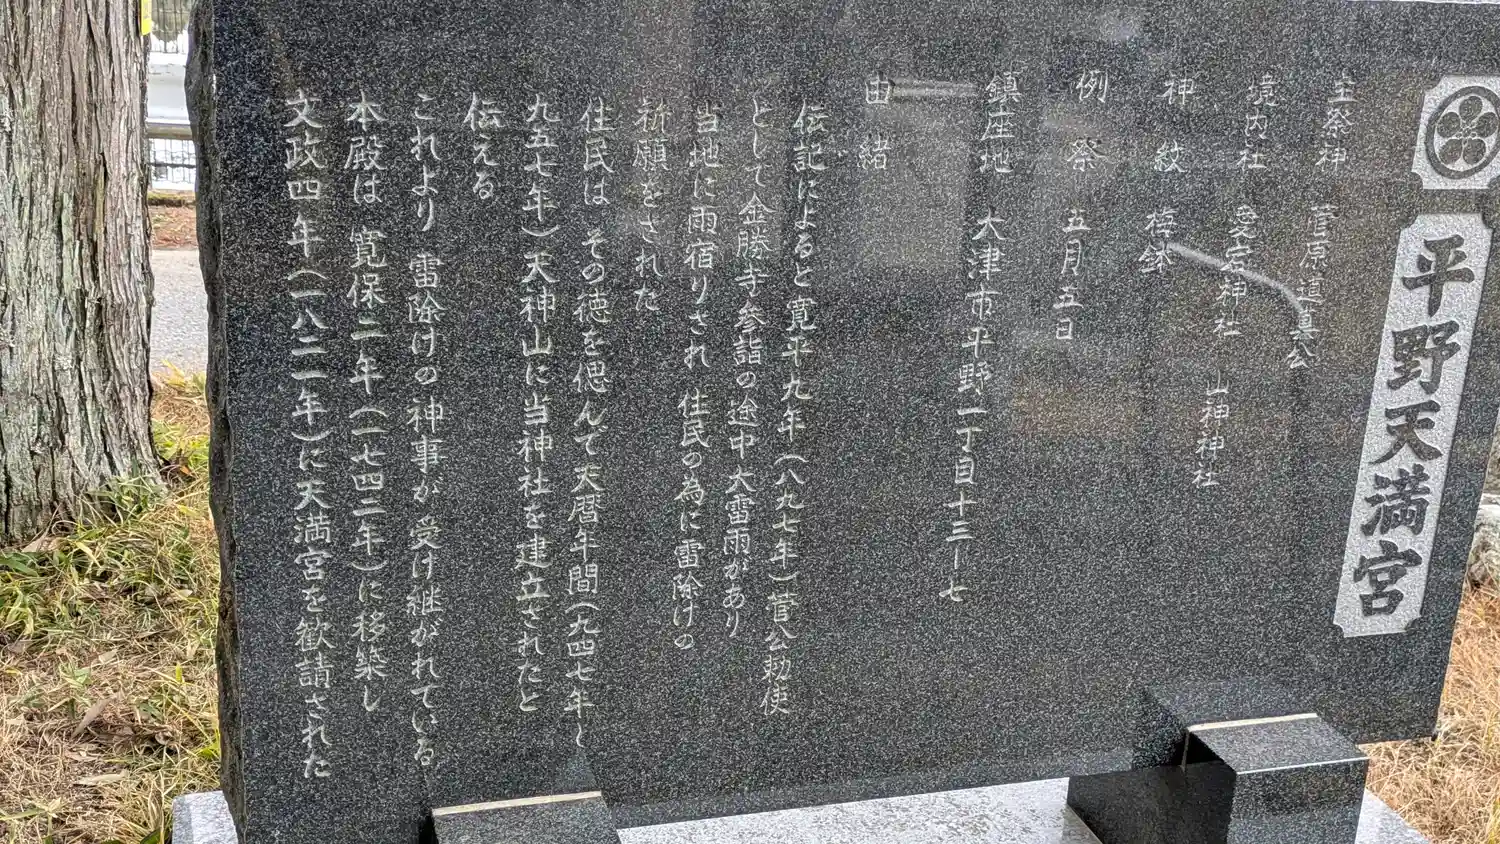 平野天満宮
主祭神 菅原道真公
境内社 愛宕神社 山神神社
神紋 梅鉢
例祭 五月五日
鎮座地 大津市平野一丁目十三ー七
由緒
伝記によると寛平九年(八九七年)菅公勅使
として金勝寺参詣の途中大雷雨があり
当地に雨宿りされ 住民の為に雷除けの
祈願をされた
住民は その徳を偲んで天暦年間(九四七年~
九五七年)天神山に当神社を建立されたと
伝える
これより 雷除けの神事が 受け継がれている
本殿は 寛保二年(一七四二年)に移築し
文政四年(一八二一年)に天満宮を歓請された